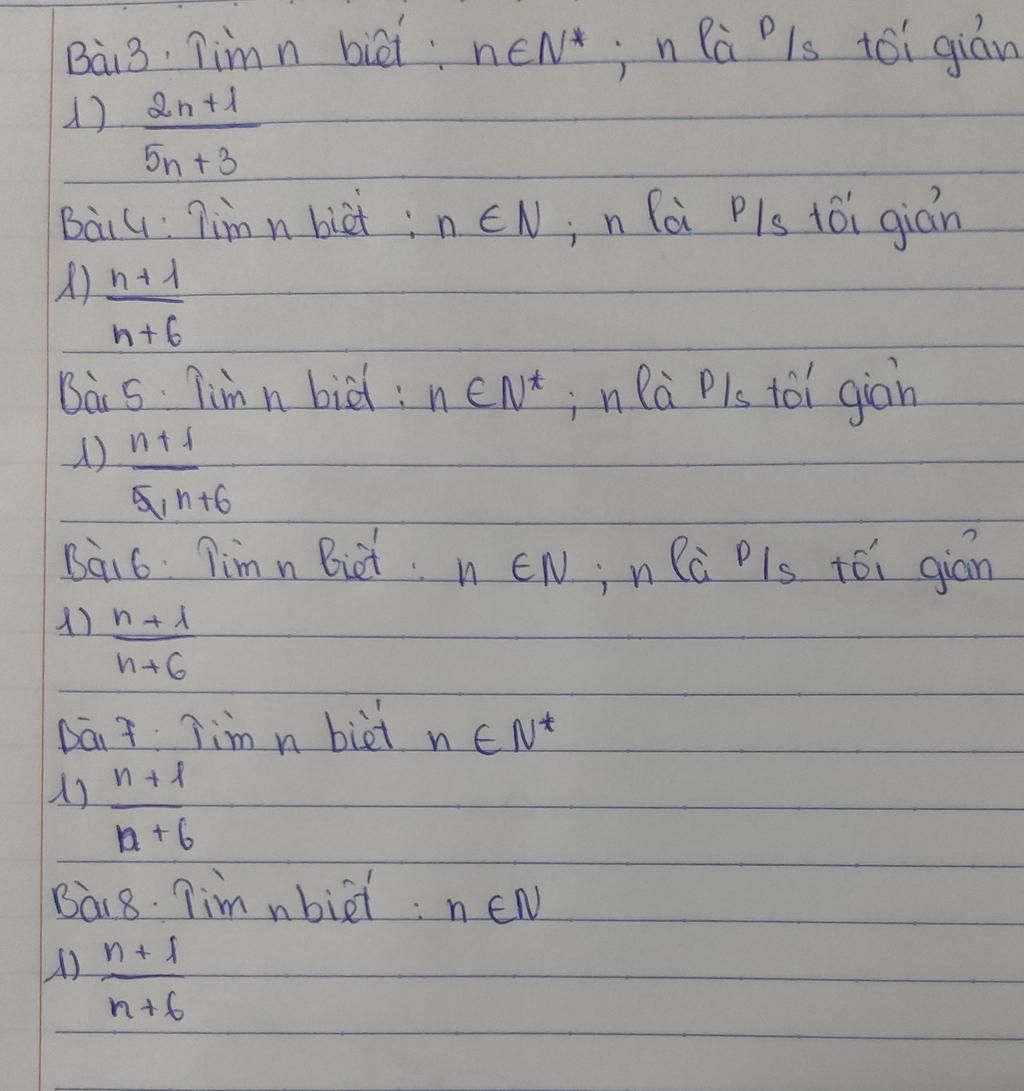 Bài 3: Tìm n biết: n∈N*; n là P/s tối giản
1) 2n+1
5n+3
Bài 4: Tìm n biết: n∈N; n là P/s tối giản
1) n+1
n+6
Bài 5: Tìm n biết: n∈N*; n là P/s tối giản
1) n+1
5,n+6
Bài 6: Tìm n biết: n∈N; n là P/s tối giản
1) n+1
n+6
Bài 7: Tìm n biết n∈N*
1) n+1
n+6
Bài 8: Tìm n biết: n∈N
1) n+1
n+6